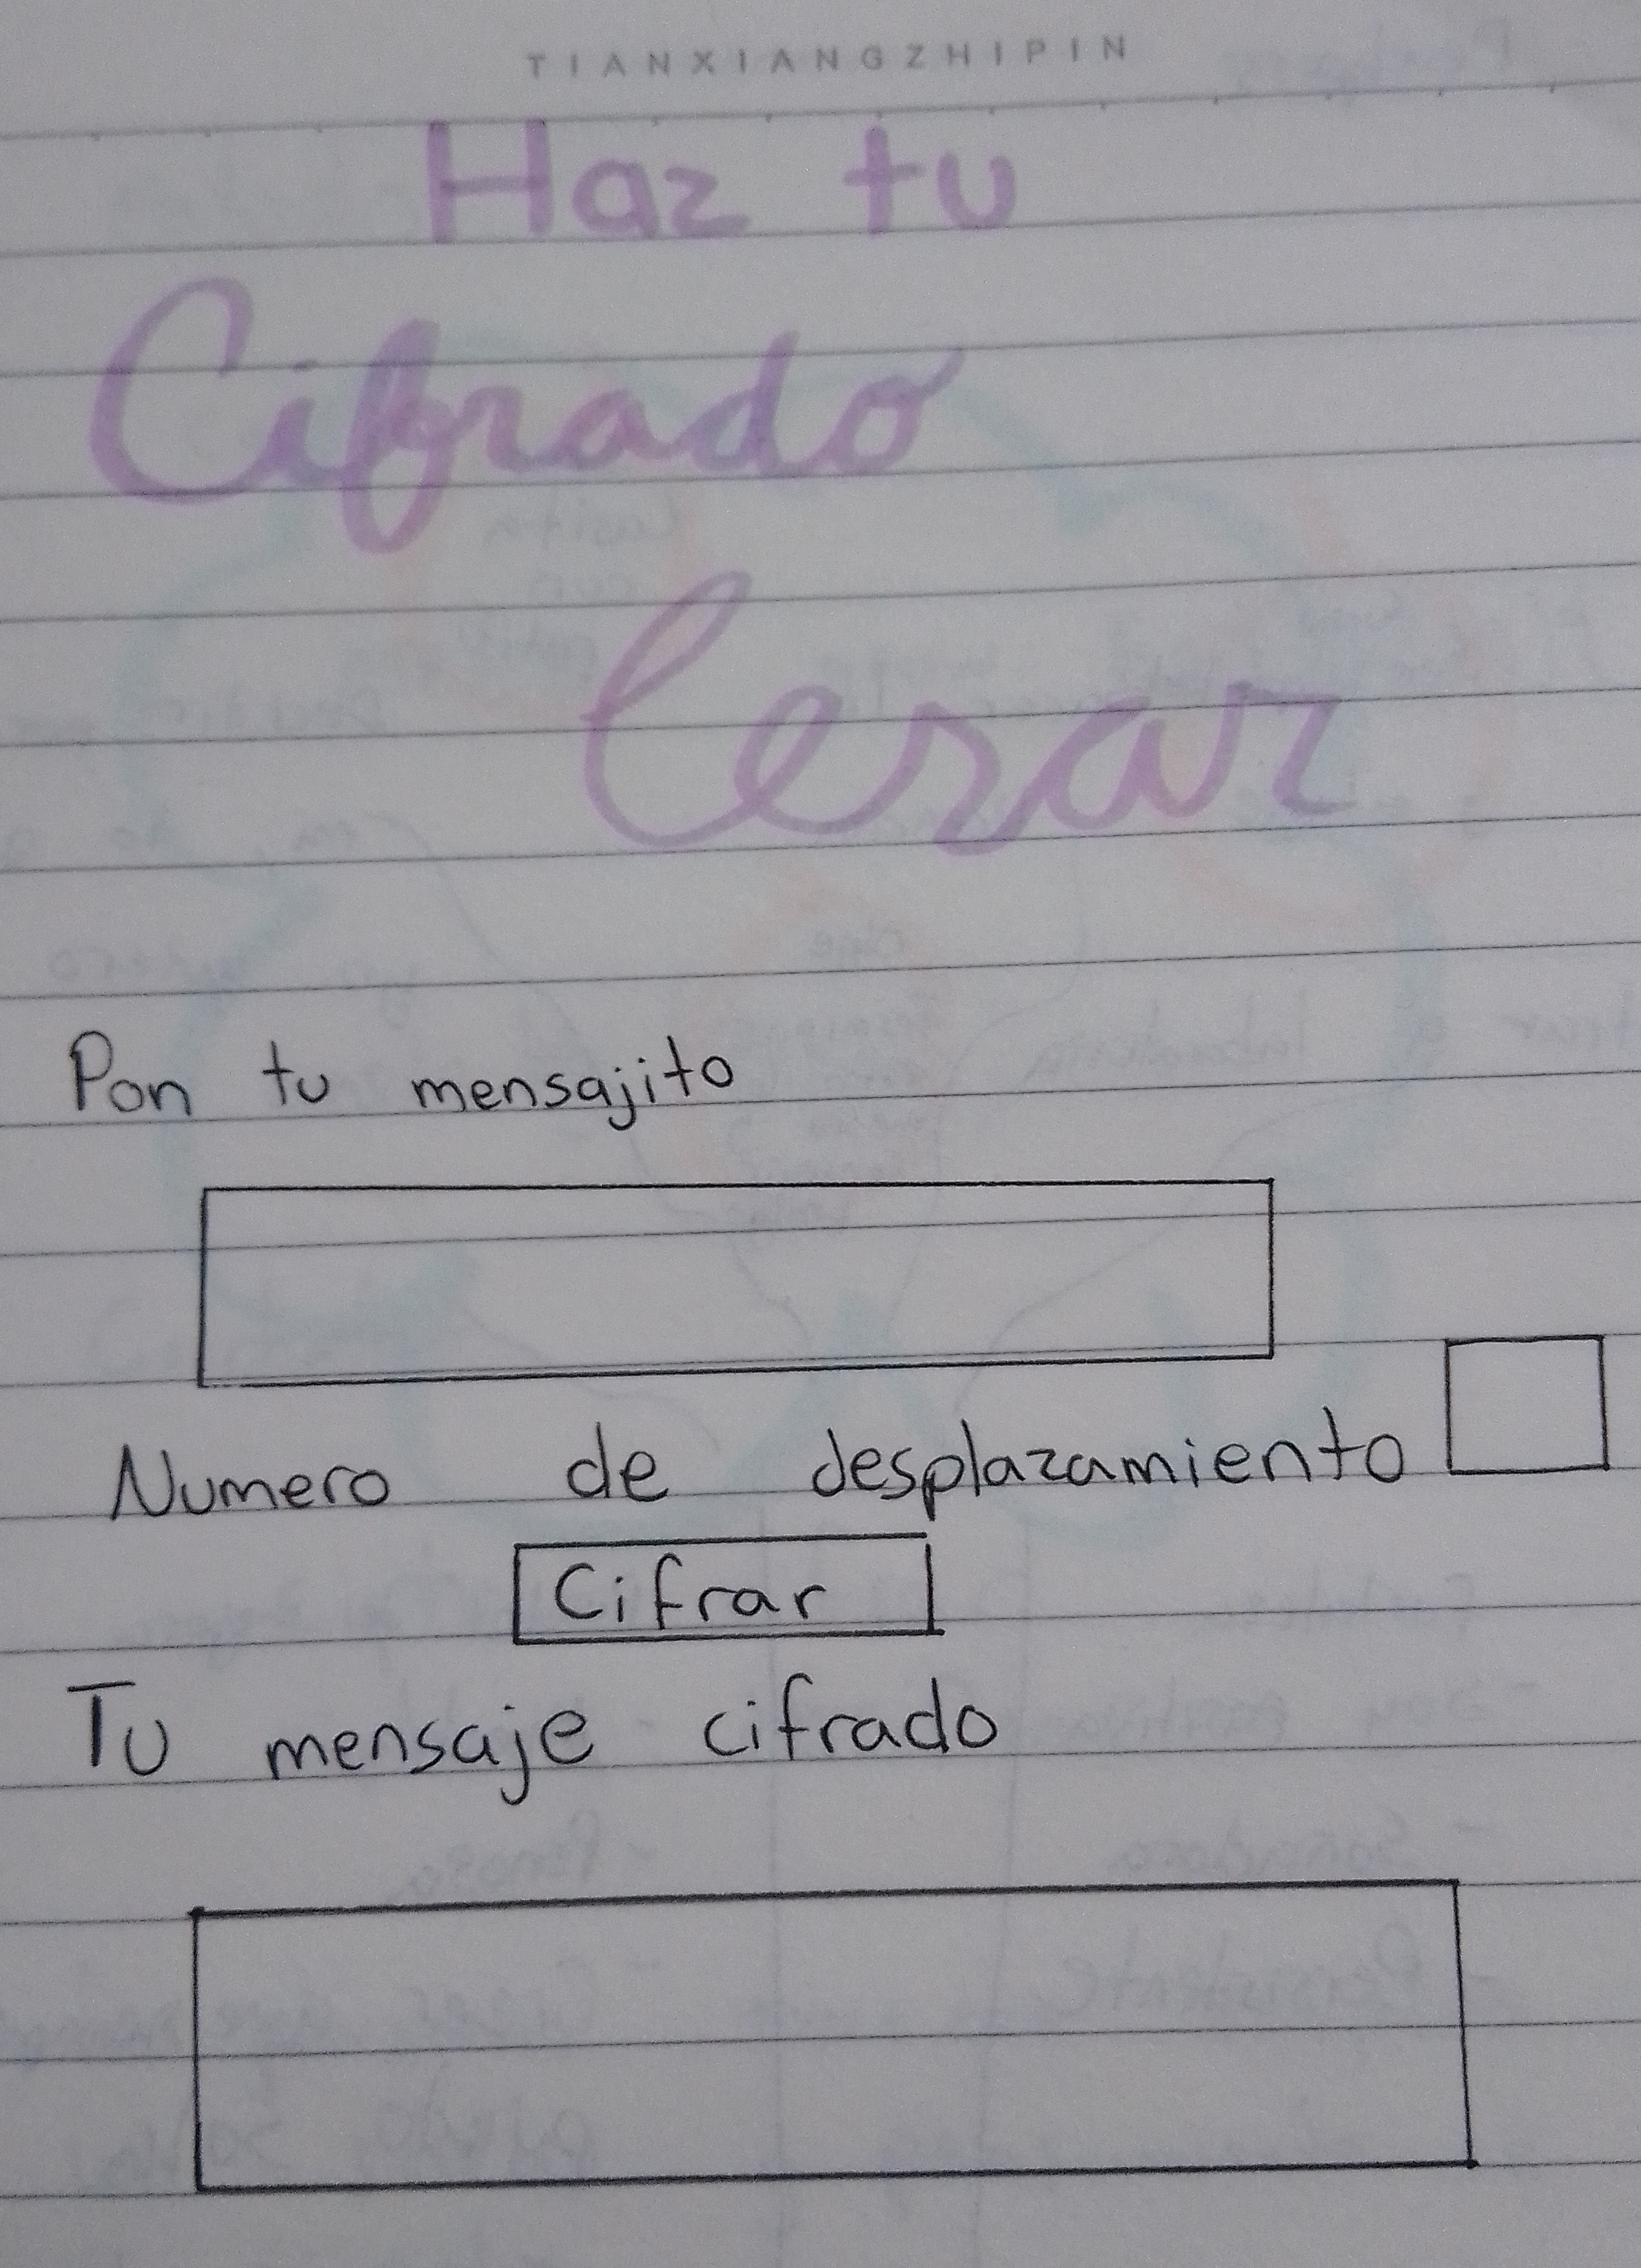 TIANXIANGZHIPIN
Haz tu
Cifrado
Cesar
Pon tu mensajito
Numero de desplazamiento
Cifrar
Tu mensaje cifrado